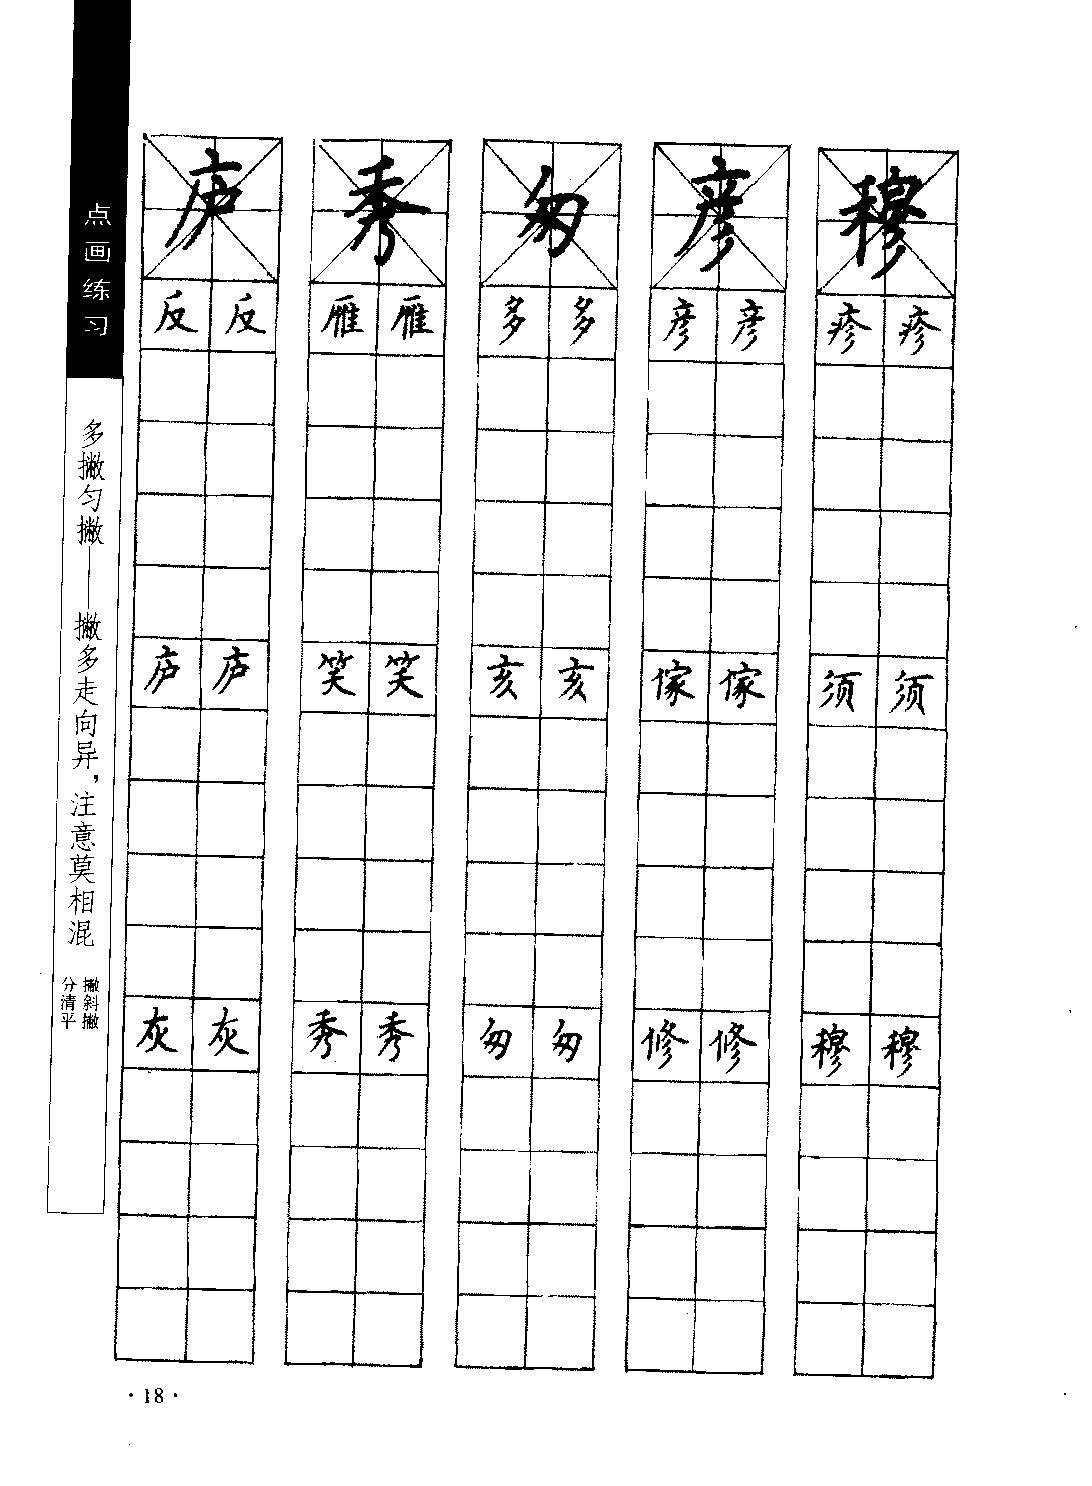 点画练习
多撇匀撇——撇多走向异，注意莫相混
撇斜撇
分清平
庐 秀 匆 彦 穆
反 反 雁 雁 多 多 彦 彦 疹 疹
庐 庐 笑 笑 亥 亥 傢 傢 须 须
灰 灰 秀 秀 匆 匆 修 修 穆 穆
·18·